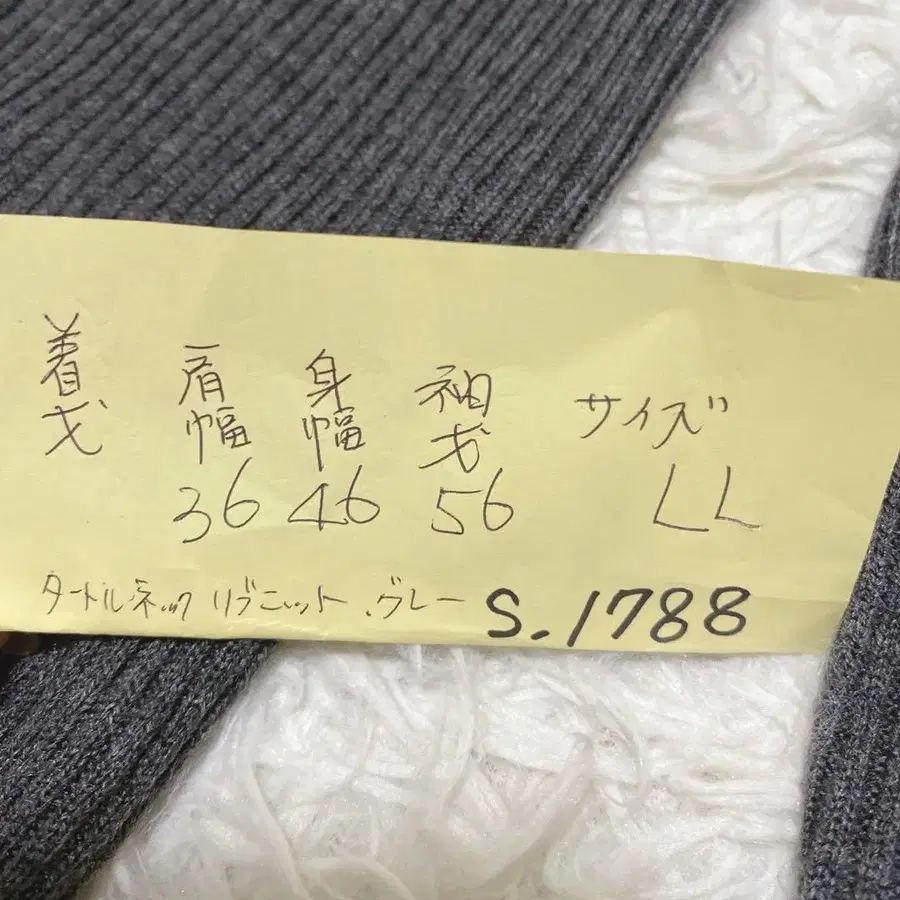 着丈 肩幅 身幅 袖丈 サイズ
36 46 56 LL
タートルネックリブニット.グレー S.1788